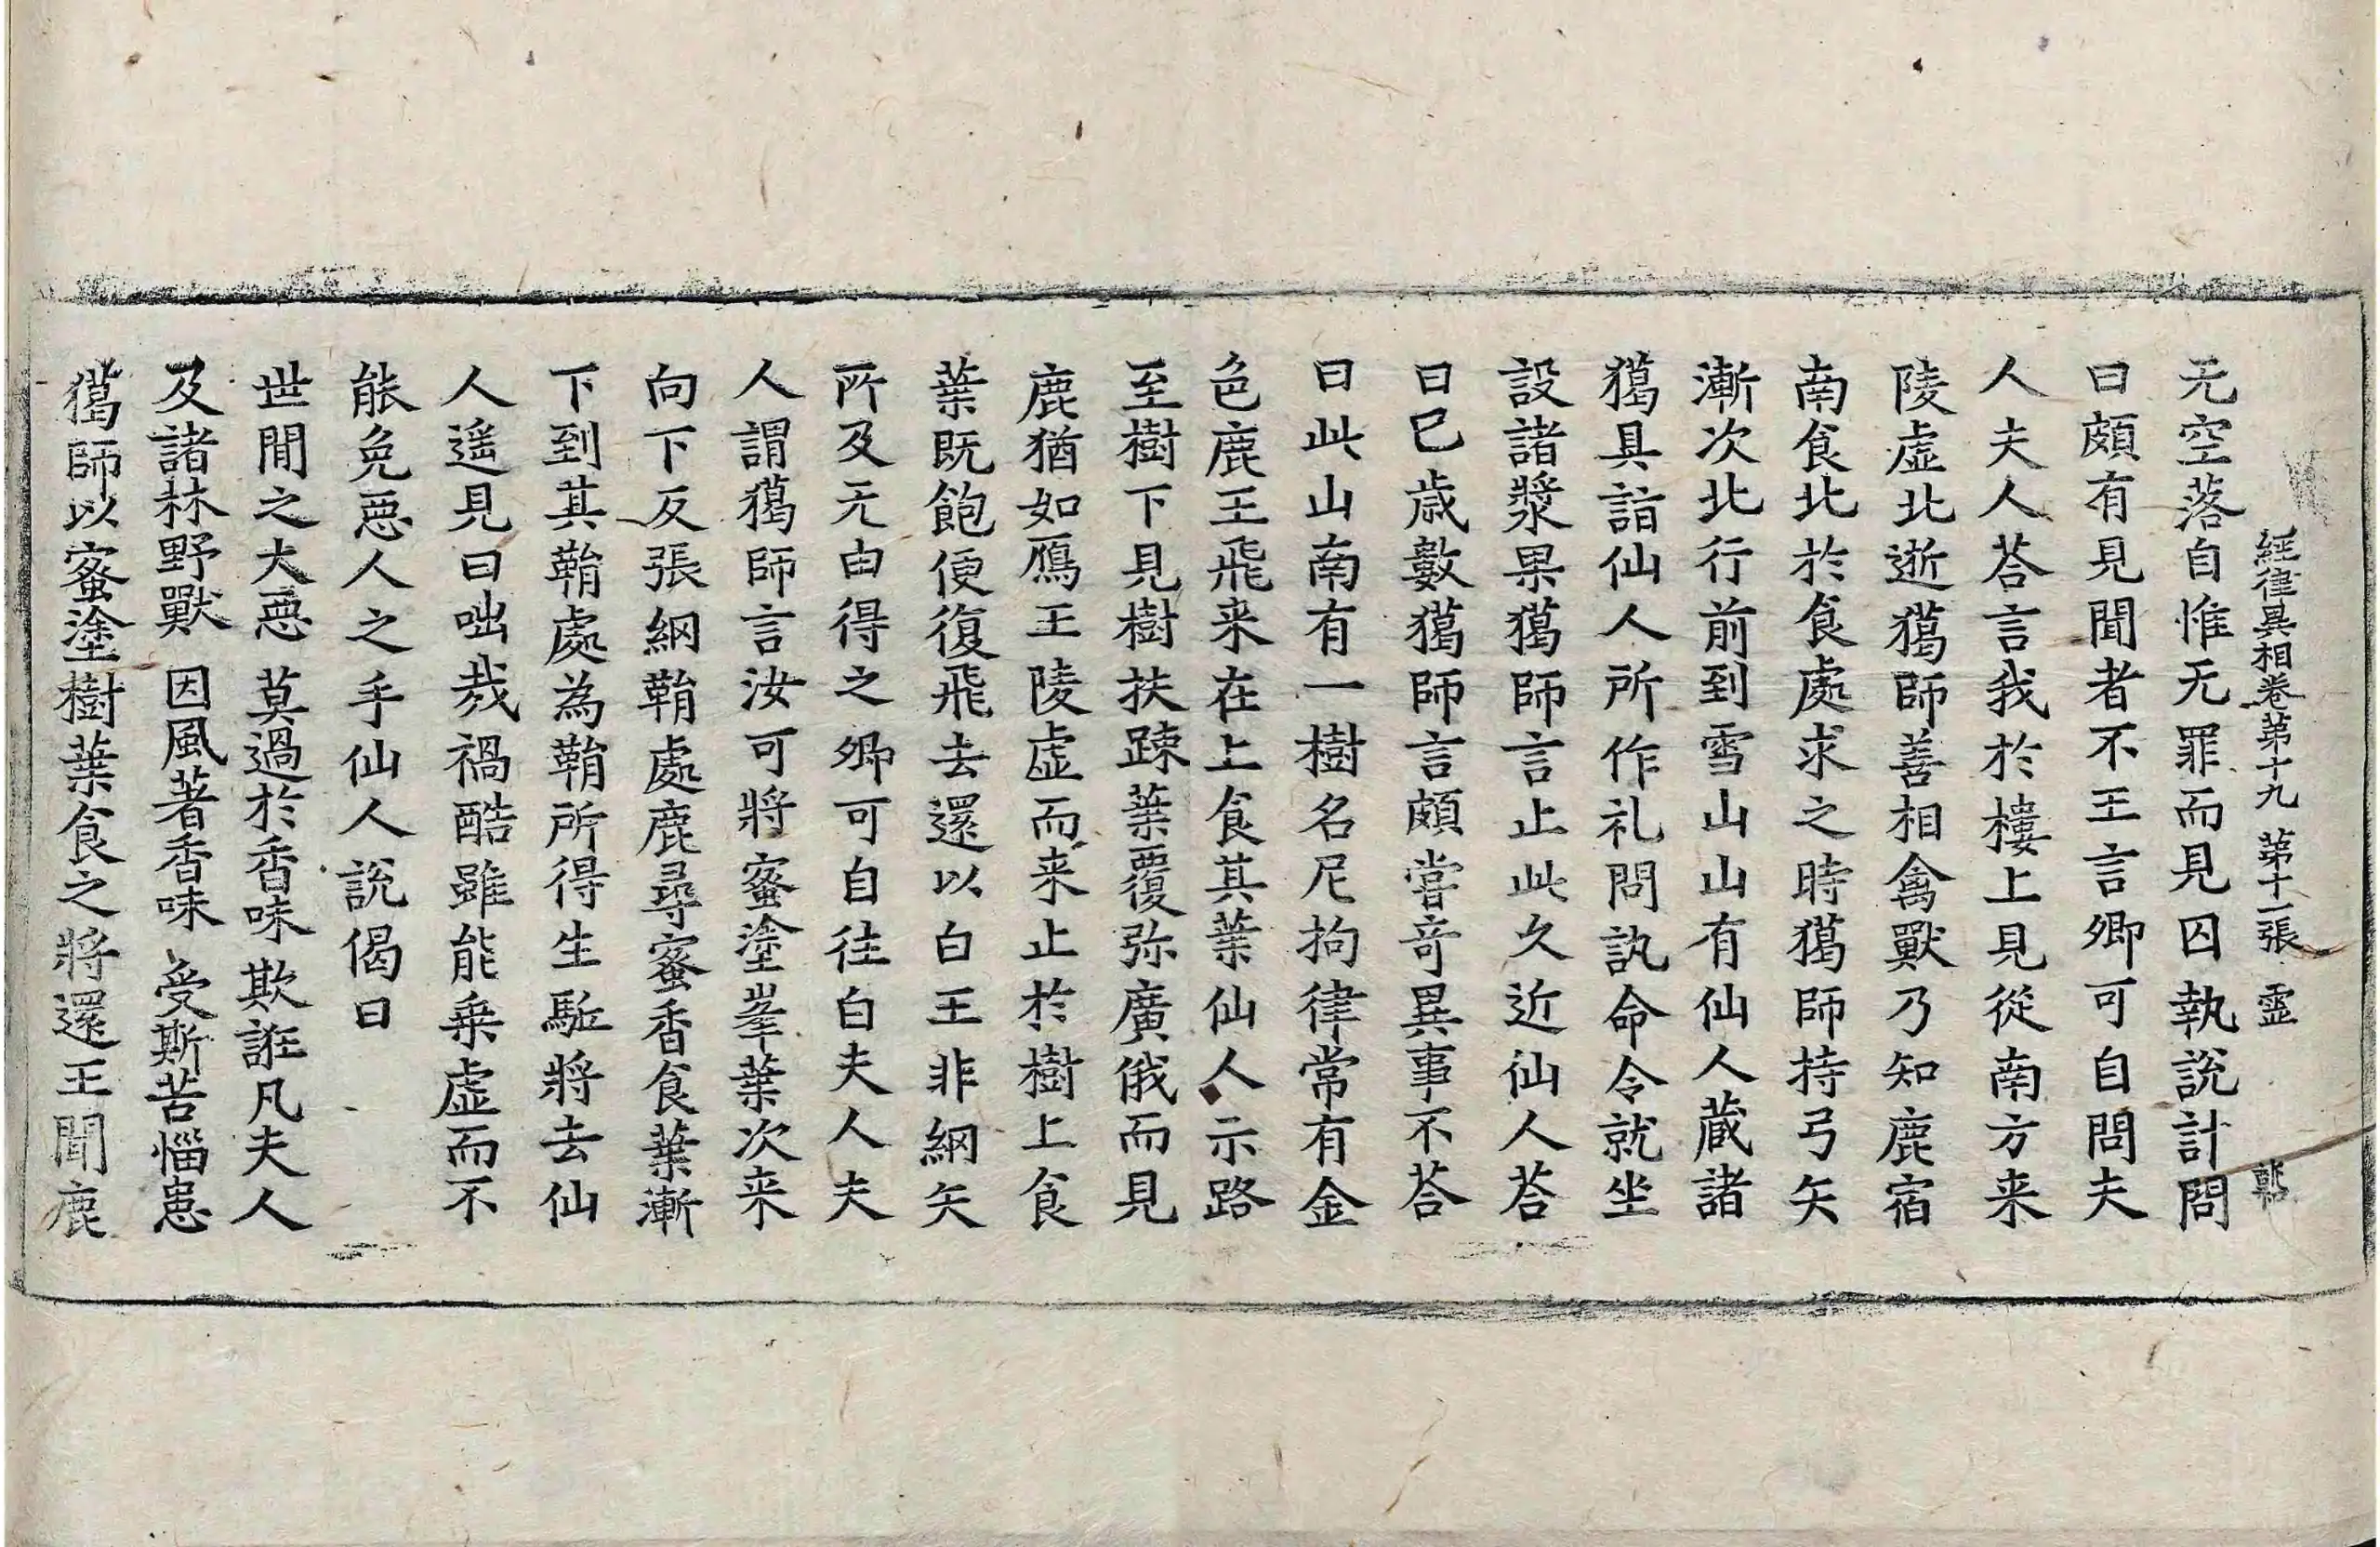 經律異相卷第十九 第十一張 靈
无空落自惟无罪而見囚執說計問
曰頗有見聞者不王言卿可自問夫
人夫人荅言我於樓上見從南方来
陵虛北逝獦師善相禽獸乃知鹿宿
南食北於食處求之時獦師持弓矢
漸次北行前到雪山山有仙人蔵諸
獦具詣仙人所作礼問訊命令就坐
設諸漿果獦師言止此久近仙人荅
曰已歳數獦師言頗嘗竒異事不荅
曰此山南有一樹名尼拘律常有金
色鹿王飛来在上食其葉仙人示路
至樹下見樹扶踈葉覆弥廣俄而見
鹿猶如鴈王陵虛而来止於樹上食
葉既飽便復飛去還以白王非網矢
所及无由得之卿可自往白夫人夫
人謂獦師言汝可將蜜塗㟧葉次来
向下反張網鞘處鹿尋蜜香食葉漸
下到其鞘處為鞘所得生駈將去仙
人遥見曰咄㦲禍酷雖能乗虛而不
能免惡人之手仙人說偈曰
世閒之大惡 莫過於香味 欺誑凡夫人
及諸林野獸 因風著香味 受斯苦惱患
獦師以蜜塗樹葉食之將還王聞鹿